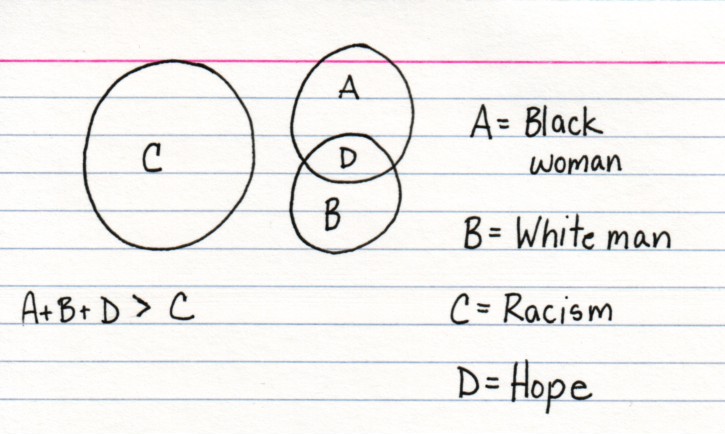 A
C
D
B
A= Black
woman
B= White man
A+B+D > C
C= Racism
D= Hope